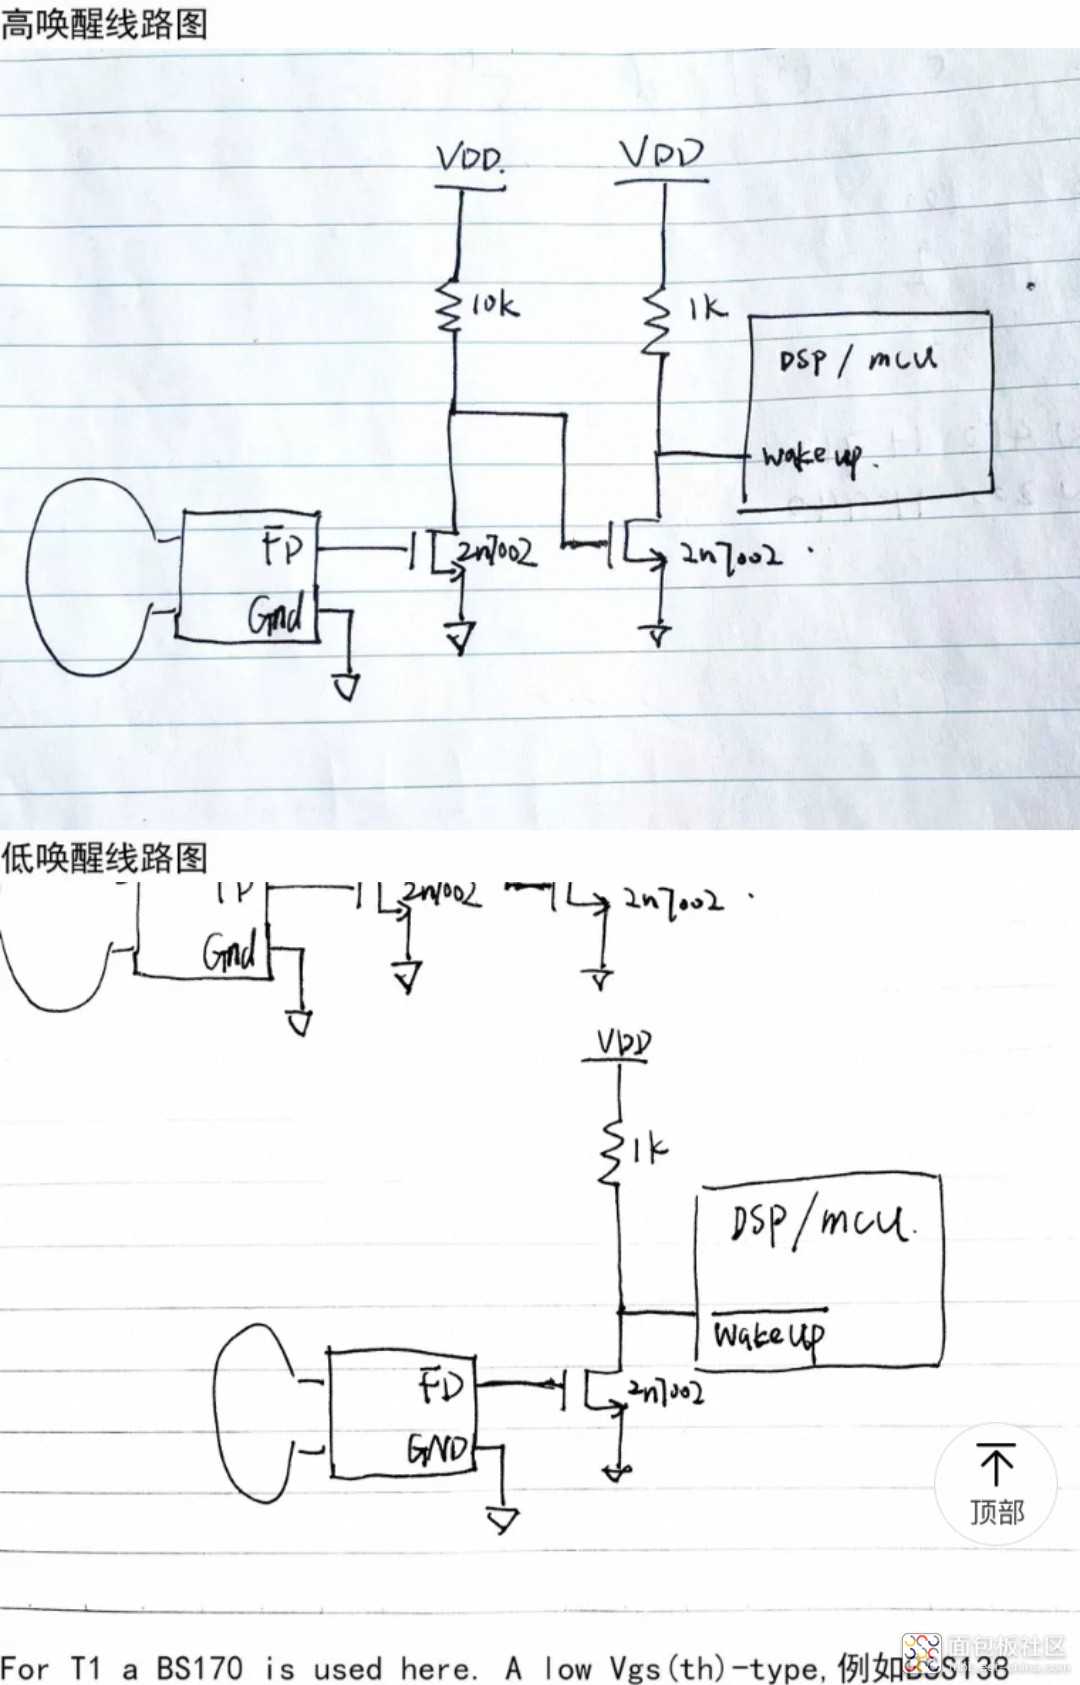 高唤醒线路图
VDD. VDD
10k 1k
DSP / mcu
wake up.
FD 2n7002 2n7002
Gnd
低唤醒线路图
2n7002 2n7002
Gnd
VDD
1k
DSP/mcu.
wakeup
FD 2n7002
GND
顶部
面包板社区
For T1 a BS170 is used here. A low Vgs(th)-type,例如BSS138